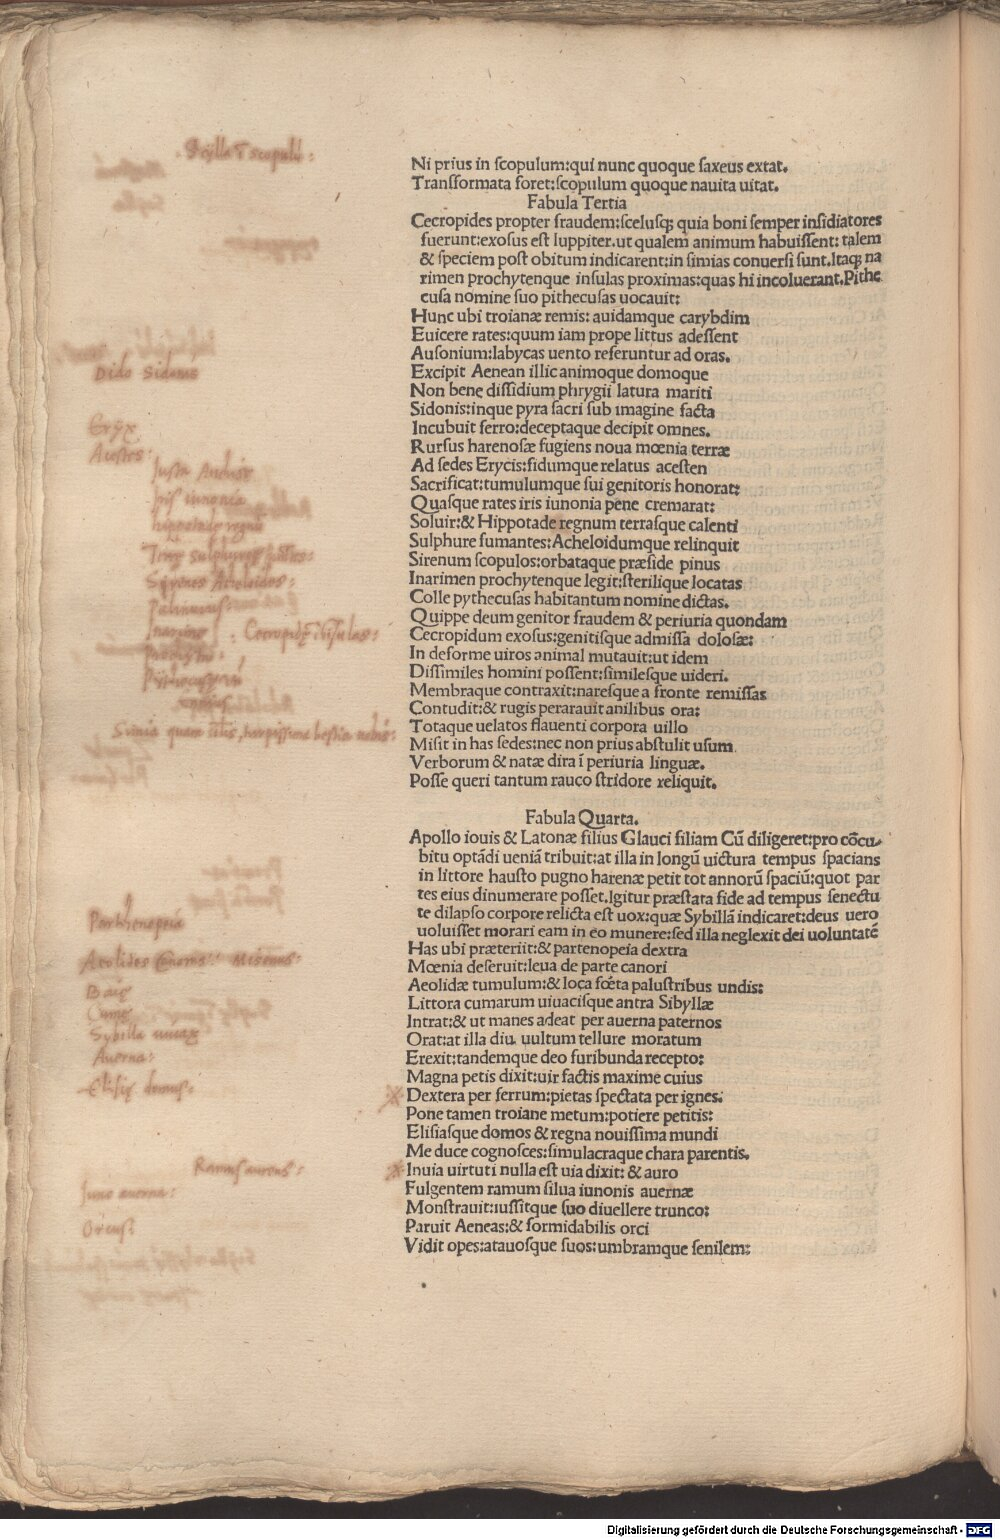 Scylla ī scopulū:
Ni prius in scopulum:qui nunc quoque saxeus extat.
Transformata foret:scopulum quoque nauita uitat.
Fabula Tertia
Cecropides propter fraudem:scelusqꝫ quia boni semper insidiatores
fuerunt:exosus est Iuppiter.ut qualem animum habuissent: talem
& speciem post obitum indicarent:in simias conuersi sunt.Itaqꝫ na
rimen prochytenque insulas proximas:quas hi incoluerant.Pithe
cusa nomine suo pithecusas uocauit:
Hunc ubi troianæ remis: auidamque carybdim
Euicere rates:quum iam prope littus adessent
Ausonium:labycas uento referuntur ad oras.
Excipit Aenean illic animoque domoque
Dido Sidonis
Non bene dissidium phrygii latura mariti
Sidonis:inque pyra sacri sub imagine facta
Incubuit ferro:deceptaque decipit omnes.
Eryx
Rursus harenosæ fugiens noua mœnia terræ
Acestes:
Ad sedes Erycis:fidumque relatus acesten
Sacrificat:tumulumque sui genitoris honorat:
Iris iunonia
Quasque rates iris iunonia pene cremarat:
Hippotade regnū
Soluit:& Hippotade regnum terrasque calenti
Sulphure fumantes:Acheloidumque relinquit
Syrenes Acheloides:
Sirenum scopulos:orbataque præside pinus
Inarimen prochytenque legit:sterilique locatas
Colle pythecusas habitantum nomine dictas.
Quippe deum genitor fraudem & periuria quondam
Cecropidum exosus:genitisque admissa dolosæ:
In deforme uiros animal mutauit:ut idem
Dissimiles homini possent:similesque uideri.
Membraque contraxit:naresque a fronte remissas
Contudit:& rugis perarauit anilibus ora:
Simia quam silis, turpissima bestia nobis:
Totaque uelatos flauenti corpora uillo
Misit in has sedes:nec non prius abstulit usum
Verborum & natæ dira ī periuria linguæ.
Posse queri tantum rauco stridore reliquit.
Fabula Quarta.
Apollo iouis & Latonæ filius Glauci filiam Cū diligeret:pro cōcu-
bitu optādi ueniā tribuit:at illa in longū uictura tempus spacians
in littore hausto pugno harenæ petit tot annorū spaciū:quot par
tes eius dinumerare posset.Igitur præstata fide ad tempus senectu
te dilapso corpore relicta est uox:quæ Sybillā indicaret:deus uero
uoluisset morari eam in eo munere:sed illa neglexit dei uoluntatē
Parthenopeia
Has ubi præteriit:& partenopeia dextra
Mœnia deseruit:leua de parte canori
Aeolides Misenus:
Aeolidæ tumulum:& loca fœta palustribus undis:
Baię
Littora cumarum uiuacisque antra Sibyllæ
Cumę
Intrat:& ut manes adeat per auerna paternos
Sybilla uiuax
Orat:at illa diu uultum tellure moratum
Auerna:
Erexit:tandemque deo furibunda recepto:
Magna petis dixit:uir factis maxime cuius
Elisię domus:
Dextera per ferrum:pietas spectata per ignes.
Pone tamen troiane metum:potiere petitis:
Elisiasque domos & regna nouissima mundi
Me duce cognosces:simulacraque chara parentis.
Ramus aureus:
Inuia uirtuti nulla est uia dixit: & auro
Iuno auerna:
Fulgentem ramum silua iunonis auernæ
Monstrauit:iussitque suo diuellere trunco:
Orcus:
Paruit Aeneas:& formidabilis orci
Vidit opes:atauosque suos:umbramque senilem:
Digitalisierung gefördert durch die Deutsche Forschungsgemeinschaft - DFG